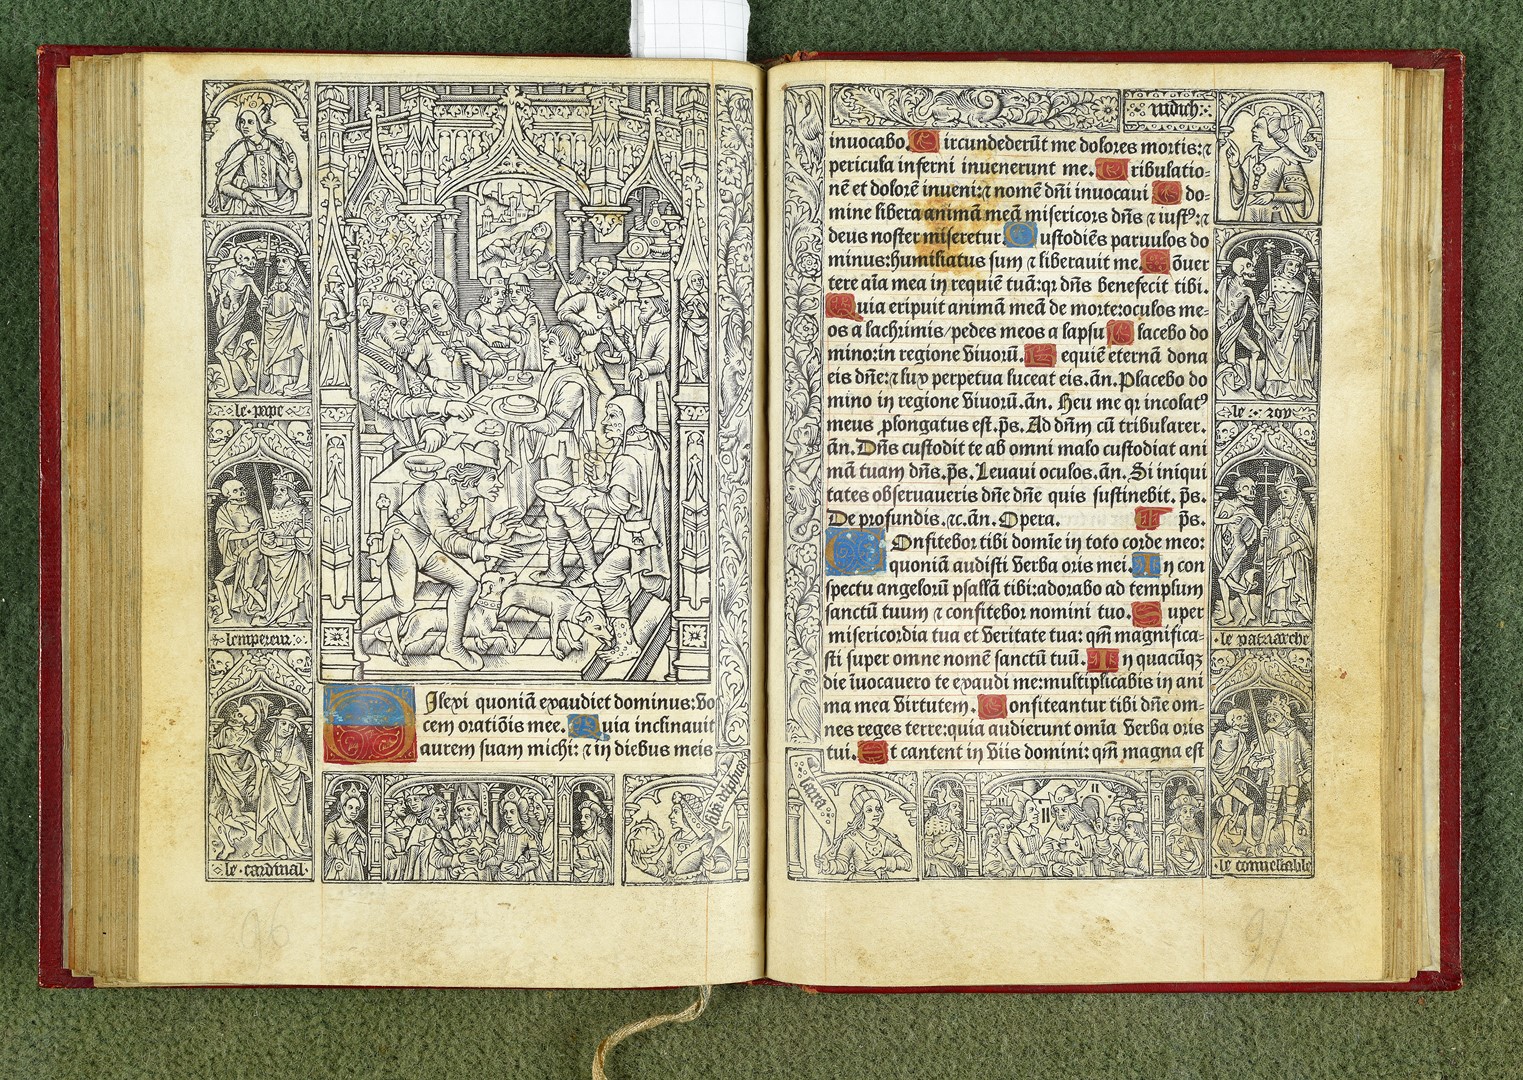 le pape
lempereur
le cardinal
Dilexi quoniā exaudiet dominus: vo
cem oratiōis mee. Quia inclinauit
aurem suam michi: ⁊ in diebus meis
iudich
inuocabo. Circundederūt me dolores mortis: ⁊
pericula inferni inuenerunt me. Tribulatio-
nē et dolorē inueni: ⁊ nomē dñi inuocaui O do-
mine libera animā meā misericors dñs ⁊ iustꝰ: ⁊
deus noster miseretur. Custodiēs paruulos do
minus: humiliatus sum ⁊ liberauit me. Cōuer
tere aīa mea in requiē tuā: qr dñs benefecit tibi.
Quia eripuit animā meā de morte: oculos me-
os a lachrimis / pedes meos a lapsu Placebo do
mino: in regione viuorū. Requiē eternā dona
eis dñe: ⁊ lux perpetua luceat eis. añ. Placebo do
mino in regione viuorū. añ. Heu me qr incolatꝰ
meus ꝓlongatus est. p̄s. Ad dñm cū tribularer.
añ. Dñs custodit te ab omni malo custodiat ani
mā tuam dñs. p̄s. Leuaui oculos. añ. Si iniqui
tates obseruaueris dñe dñe quis sustinebit. p̄s.
De profundis. ⁊c. añ. Opera. p̄s.
Confitebor tibi domīe in toto corde meo:
quoniā audisti verba oris mei. In con
spectu angelorū psallā tibi: adorabo ad templum
sanctū tuum ⁊ confitebor nomini tuo. Super
misericordia tua et veritate tua: qm̄ magnifica-
sti super omne nomē sanctū tuū. In quacūqꝫ
die īuocauero te exaudi me: multiplicabis in ani
ma mea virtutem. Confiteantur tibi dñe om-
nes reges terre: quia audierunt omīa verba oris
tui. Et cantent in viis domini: qm̄ magna est
le roy
le patriarche
le connestable